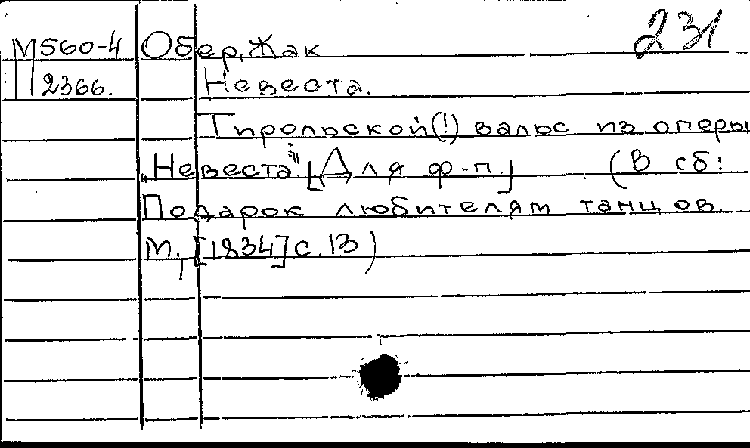 231
М560-4 Обер, Жак
2366. Невеста.
Тирольской(!) вальс из оперы
„Невеста". [Для ф-п.] (В сб:
Подарок любителям танцов.
М., [1834] с. 13)